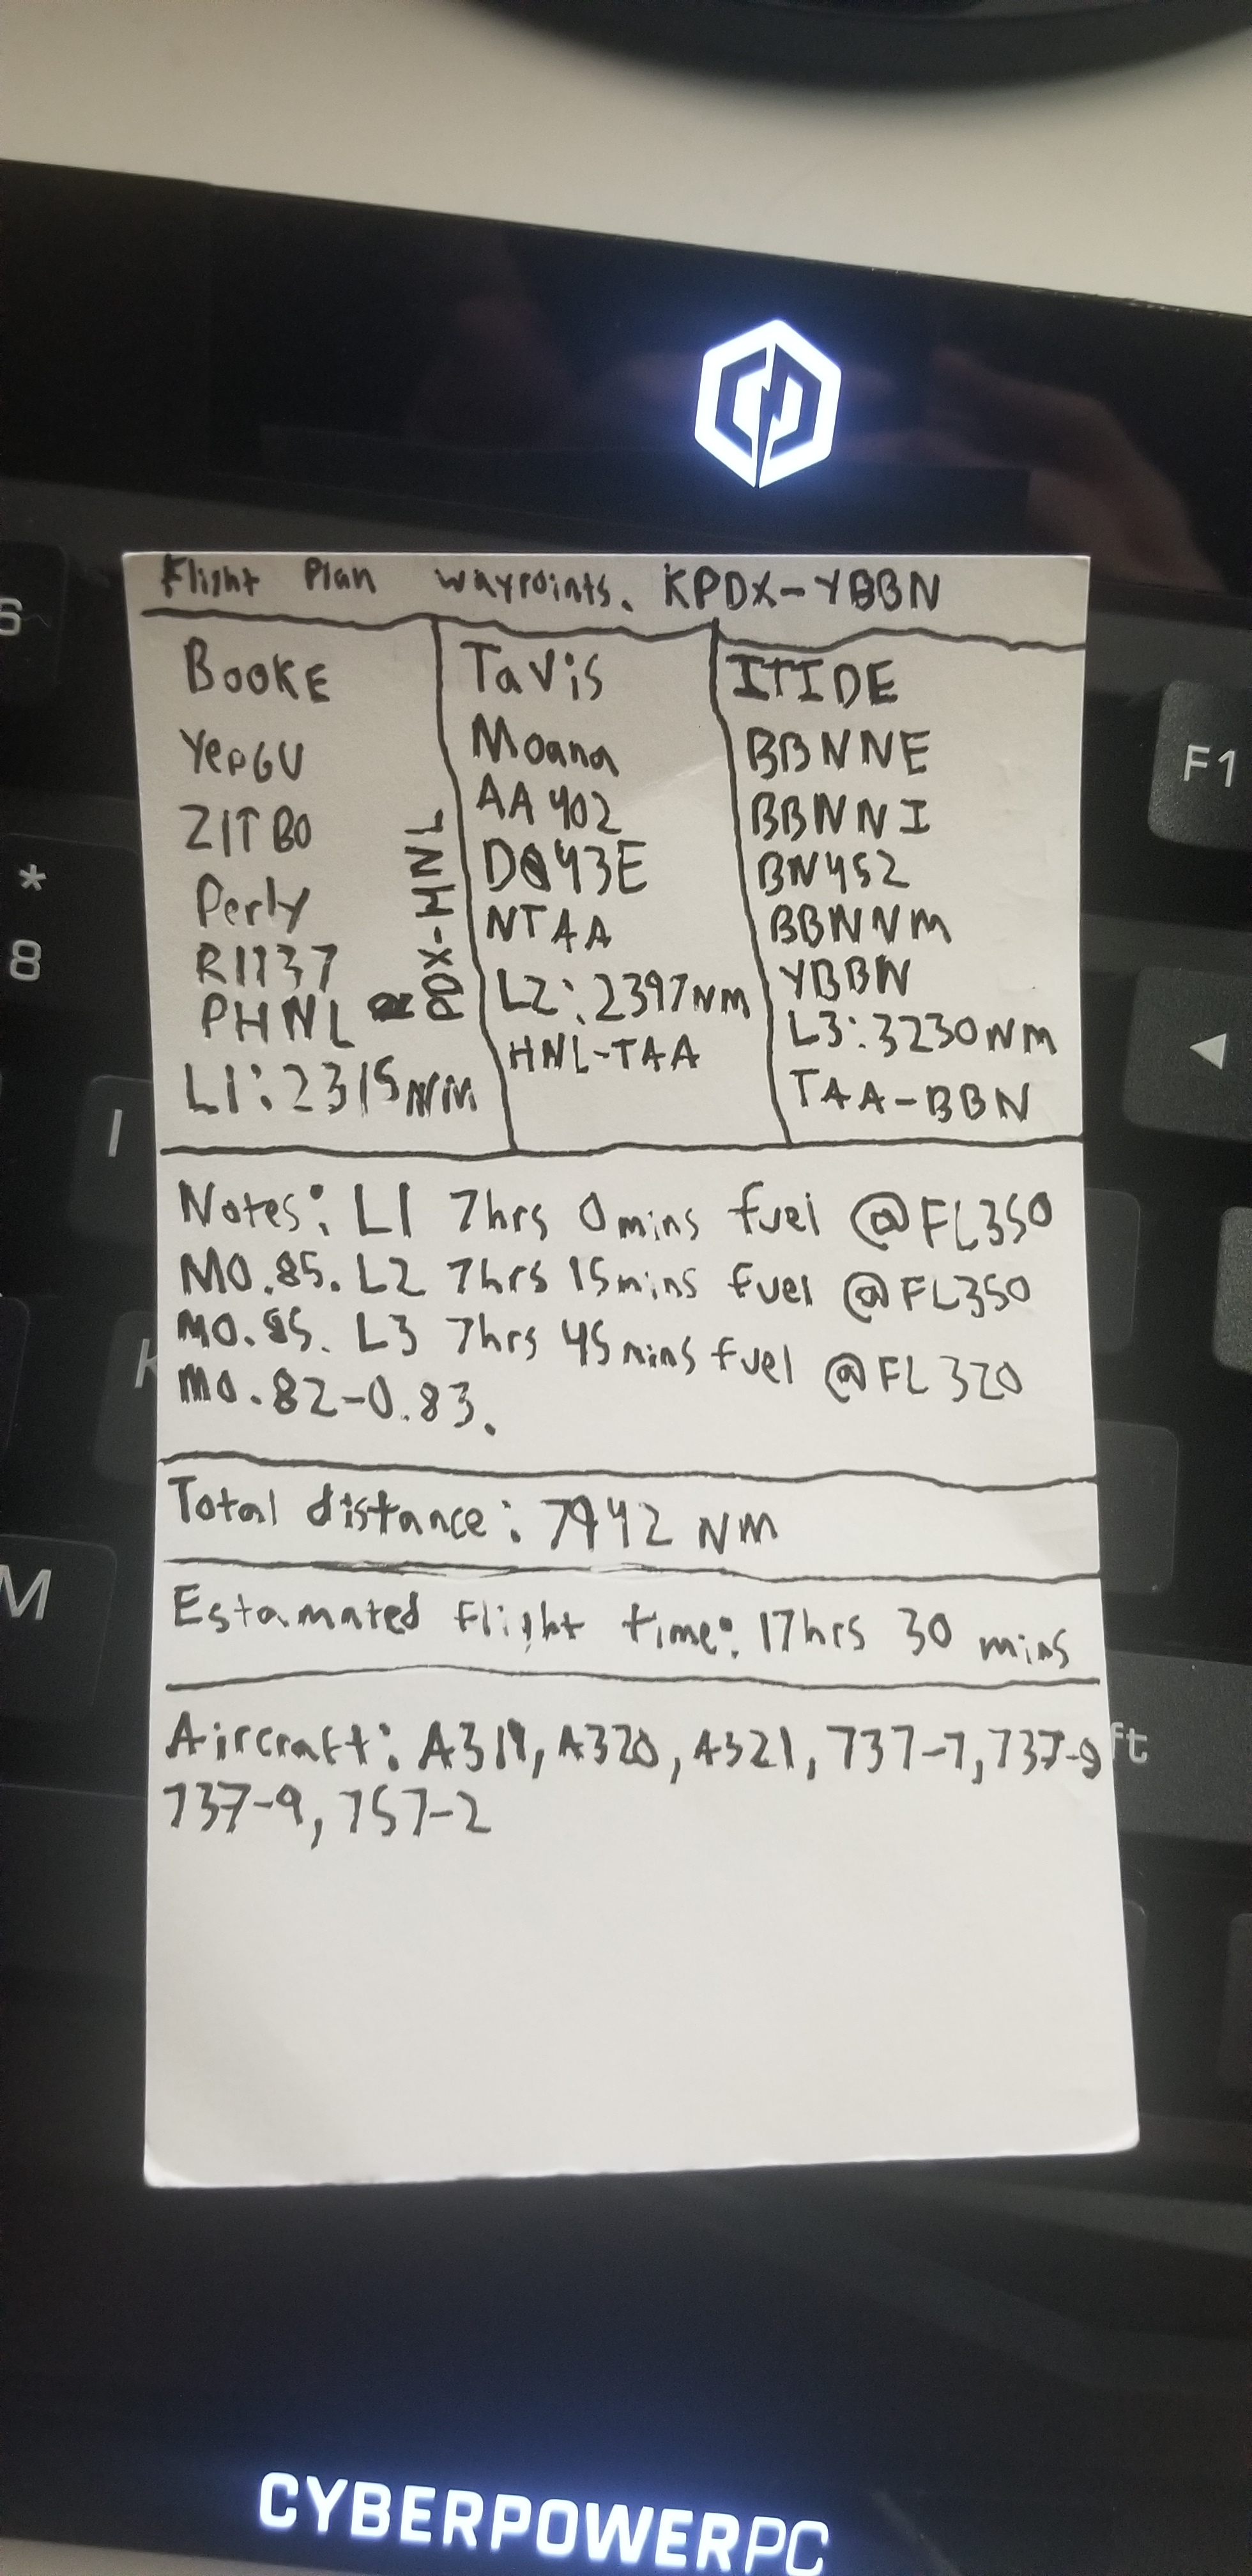 Flight Plan waypoints. KPDX-YBBN
BOOKE
YEPGU
ZITBO
Perly
R1137
PHNL
L1:2315NM
PDX-HNL
Tavis
Moana
AA402
D043E
NTAA
L2:2397NM
HNL-TAA
ITIDE
BBNNE
BBNNI
BN452
BBNNM
YBBN
L3:3230NM
TAA-BBN
Notes: L1 7hrs 0mins fuel @FL350
M0.85. L2 7hrs 15mins fuel @FL350
M0.85. L3 7hrs 45mins fuel @FL320
M0.82-0.83.
Total distance: 7942 NM
Estamated flight time: 17hrs 30 mins
Aircraft: A319, A320, A321, 737-7, 737-8
737-9, 757-2
6
*
8
I
K
M
F1
◄
ft
CYBERPOWERPC